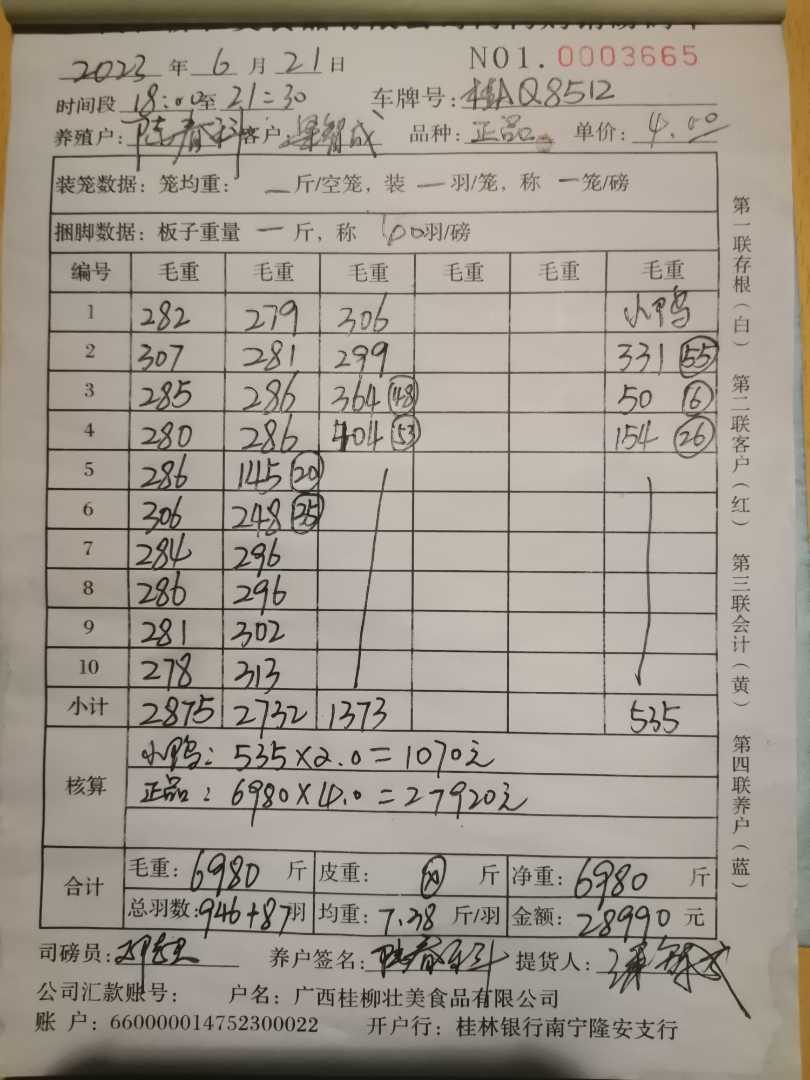 NO1.0003665
2023 年 6 月 21 日
时间段 18:00至 21:30 车牌号:桂AQ8512
养殖户: 客户: 梁智成 品种:正品 单价:4.00
装笼数据:笼均重: 一斤/空笼,装 一羽/笼,称 一笼/磅
捆脚数据:板子重量 一 斤,称 100羽/磅
编号 毛重 毛重 毛重 毛重 毛重 毛重
1 282 279 306 小鸭
2 307 281 299 331 55
3 285 286 364 48 50 6
4 280 286 404 53 154 26
5 286 145 20
6 306 248 35
7 284 296
8 286 296
9 281 302
10 278 313
小计 2875 2732 1373 535
核算 小鸭:535×2.0=1070元
正品:6980×4.0=27920元
合计 毛重:6980 斤 皮重: 斤 净重:6980 斤
总羽数:946+87羽 均重:7.38 斤/羽 金额:28990 元
司磅员: 养户签名: 提货人:
公司汇款账号: 户名:广西桂柳壮美食品有限公司
账 户:660000014752300022 开户行:桂林银行南宁隆安支行
第一联存根(白) 第二联客户(红) 第三联会计(黄) 第四联养户(蓝)